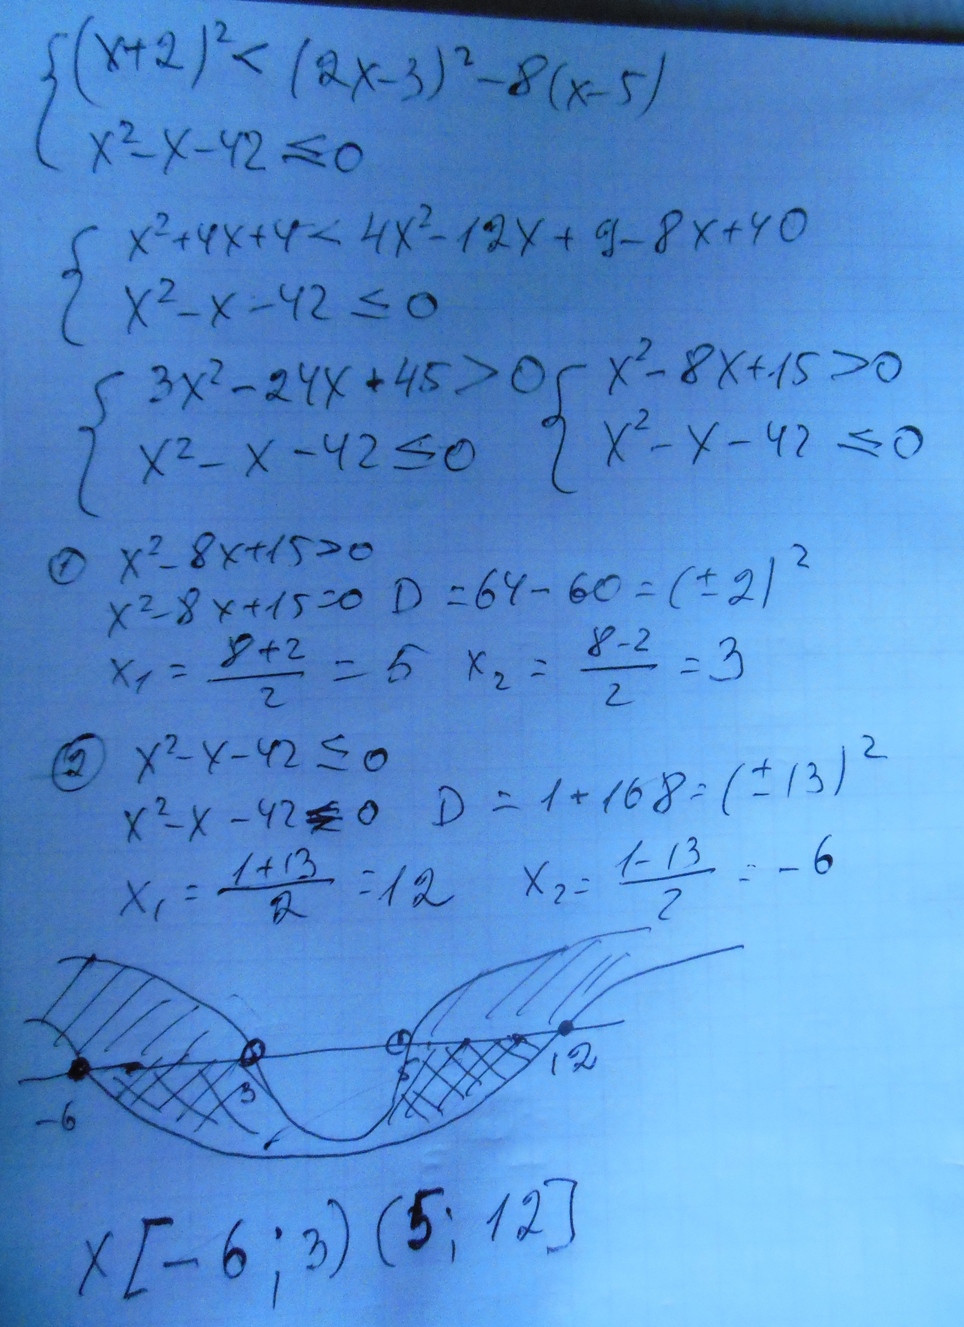 { (x+2)² < (2x-3)² - 8(x-5)
x² - x - 42 ≤ 0
{ x² + 4x + 4 < 4x² - 12x + 9 - 8x + 40
x² - x - 42 ≤ 0
{ 3x² - 24x + 45 > 0 { x² - 8x + 15 > 0
x² - x - 42 ≤ 0 x² - x - 42 ≤ 0
① x² - 8x + 15 > 0
x² - 8x + 15 = 0 D = 64 - 60 = (±2)²
x₁ = (8+2)/2 = 5 x₂ = (8-2)/2 = 3
② x² - x - 42 ≤ 0
x² - x - 42 = 0 D = 1 + 168 = (±13)²
x₁ = (1+13)/2 = 12 x₂ = (1-13)/2 = -6
-6 3 5 12
x [-6; 3) (5; 12]